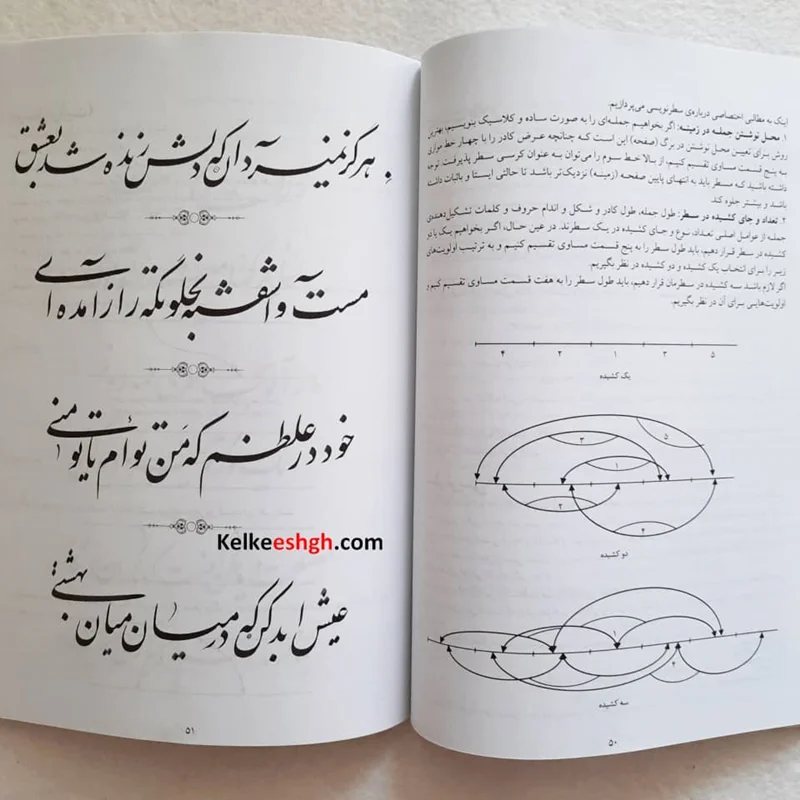 اینک به مطالبی اختصاصی درباره‌ی سطرنویسی می‌پردازیم.
۱. محل نوشتن جمله در زمینه: اگر بخواهیم جمله‌ای را به صورت ساده و کلاسیک بنویسیم، بهترین
روش برای تعیین محل نوشتن در برگ (صفحه) این است که چنانچه عرض کادر را با چهار خط موازی
به پنج قسمت مساوی تقسیم کنیم، از بالا خط سوم را می‌توان به عنوان کرسی سطر پذیرفت. توجه
داشته باشید که سطر باید به انتهای پایین صفحه (زمینه) نزدیک‌تر باشد تا حالتی ایستا و باثبات داشته
باشد و بیشتر جلوه کند.
۲. تعداد و جای کشیده در سطر: طول جمله، طول کادر و شکل و اندام حروف و کلمات تشکیل‌دهنده‌ی
جمله از عوامل اصلی تعداد، نوع و جای کشیده در یک سطرند. در عین حال، اگر بخواهیم یک یا دو
کشیده در سطر قرار دهیم، باید طول سطر را به پنج قسمت مساوی تقسیم کنیم و به ترتیب اولویت‌های
زیر را برای انتخاب یک کشیده و دو کشیده در نظر بگیریم.
اگر لازم باشد سه کشیده در سطرمان قرار دهیم، باید طول سطر را به هفت قسمت مساوی تقسیم کنیم و
اولویت‌هایی برای آن در نظر بگیریم.
۵ ۳ ۱ ۲ ۴
یک کشیده
۵
۳
۱
۲
۴
دو کشیده
۱
۲
سه کشیده
۵۰
هرگز نمیرد آن که دلش زنده شد بعشق
مست و آشفته بخلوتگه راز آمده‌ای
خود در غلطم که من توأم یا تو منی
Kelkeeshgh.com
عیش ابد کن که در میان میان بهشتی
۵۱